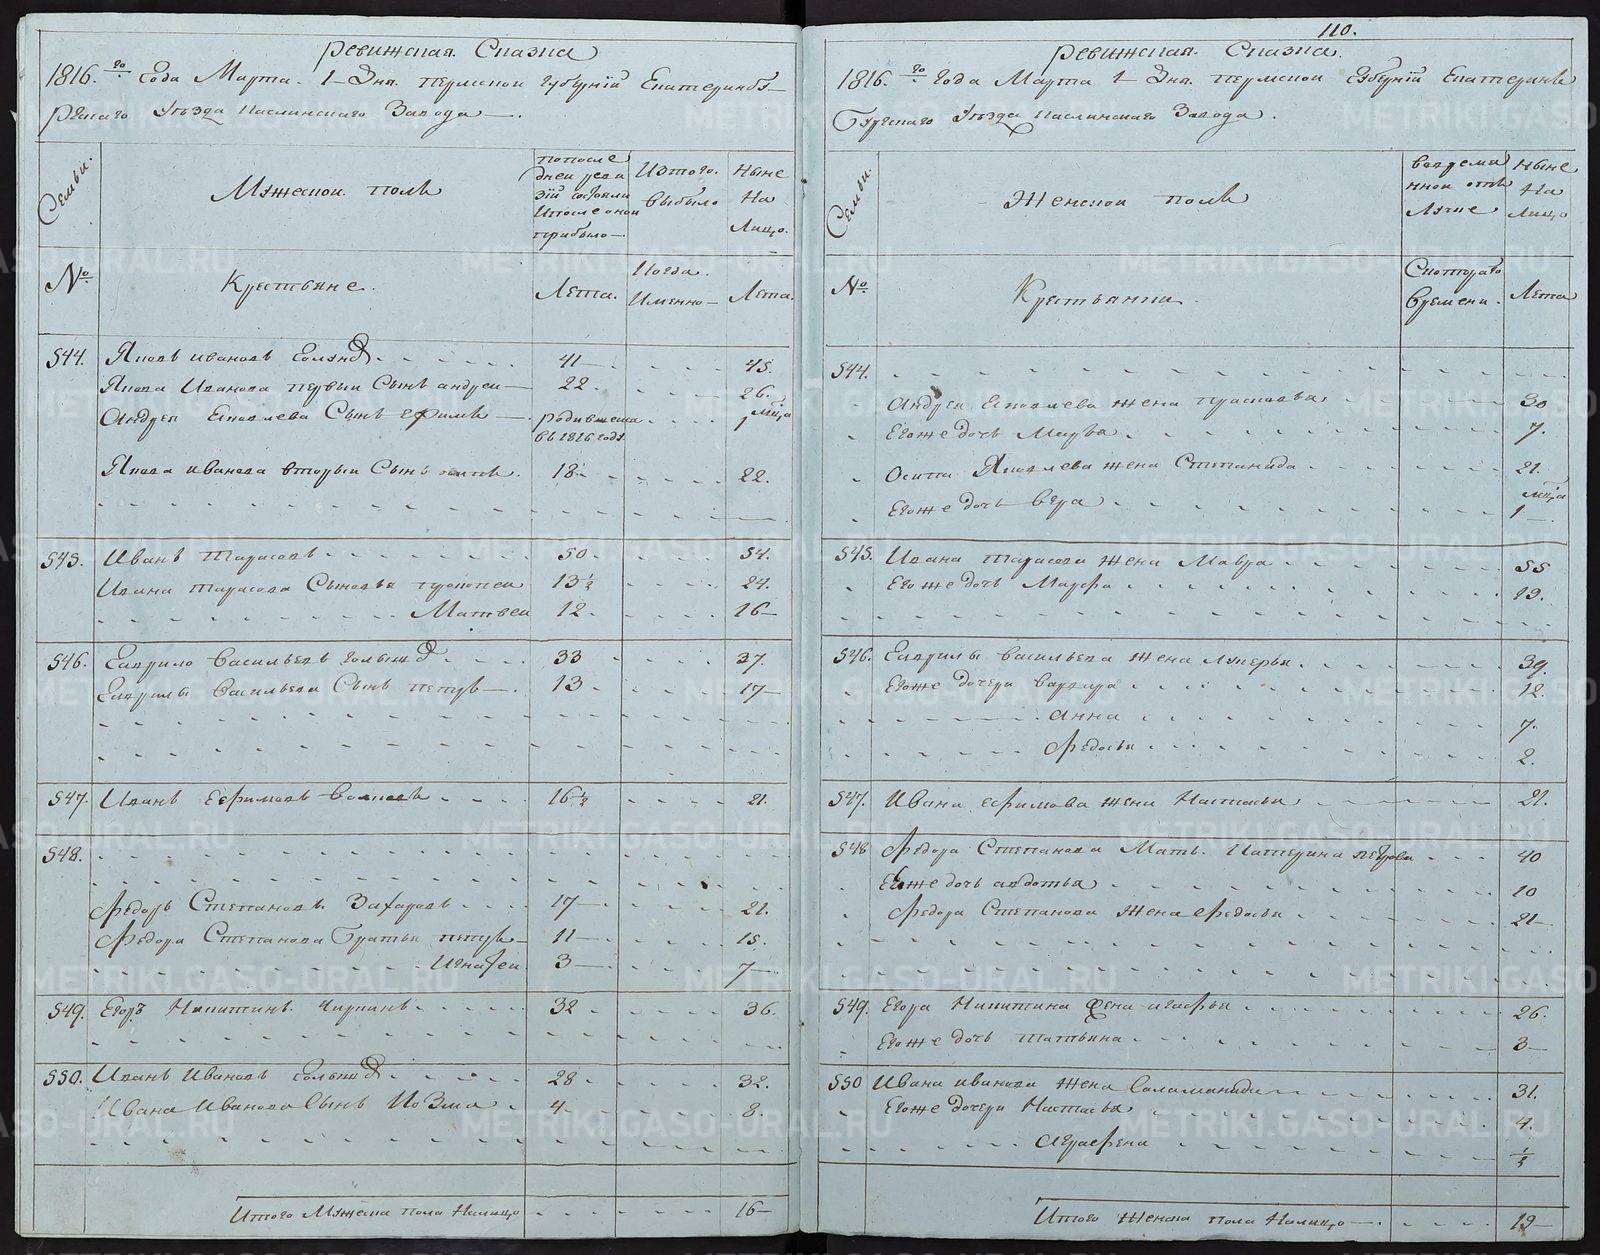 110.
Ревижская Сказка
1816.го Года Марта 1 Дня. Пермской Губернïи Екатеринбу-
ргскаго Уѣзда Каслинскаго Завода
Семьи.
Мужескои полъ
попосле
дней реви
зïи состояло
ипосле оной
прибыло
Изтого.
выбыло
Ныне
На
Лицо.
№
Крестьяне.
Лета.
Когда.
Именно
Лета.
544. Яковъ Ивановъ 41 45.
Якова Иванова первыи Сынъ андреи 22 26.
Андрея Яковлева Сынъ ефимъ родившеися 1 мца
въ 1816 годъ
Якова Иванова вторыи Сынъ осипъ 18 22.
545. Иванъ Тарасовъ 50 54.
Ивана Тарасова Сыновья прокопеи 13½ 24.
Матвеи 12 16
546. Гаврило Васильевъ 33 37.
Гаврилы Васильева Сынъ петръ 13 17
547. Иванъ Ефимовъ 16½ 21.
548.
Федоръ Степановъ Захаровъ 17 21.
Федора Степанова Братья петръ 11 15.
Игнатеи 3 7
549. Егоръ Никитинъ 32 36.
550. Иванъ Ивановъ 28 32.
Ивана Иванова Сынъ Козма 4 8.
Итого Мужеска пола Налицо 16
Ревижская Сказка.
1816.го Года Марта 1 Дня. Пермской Губернïи Екатерин
Бургскаго Уѣзда Каслинскаго Завода.
Семьи.
Женскои полъ
вовреми
ннои отъ
Лучке
Ныне
На
Лицо
№
Крестьянки.
Скотораго
Времени.
Лета
544.
Андрея Яковлева жена прасковья 30
Егоже дочь Марфа 7.
Осипа Яковлева жена Степанида 21.
Егоже дочь Вера 1 мца
545. Ивана Тарасова жена Мавра 55
Егоже дочь Марфа 19.
546. Гаврилы Васильева жена Лукерья 39.
Егоже дочери Варвара 12.
Анна 7.
Федосья 2.
547. Ивана ефимова жена Настасья 21.
548 Федора Степанова Мать Катерина петрова 40
Егоже дочь авдотья 10
Федора Степанова жена Федосья 21
549. Егора Никитина жена агафья 26.
Егоже дочь Татьяна 3
550 Ивана иванова жена Саламанида 31.
Егоже дочери Настасья 4.
Аграфена ½
Итого Женска пола Налицо 19
METRIKI.GASO-URAL.RU